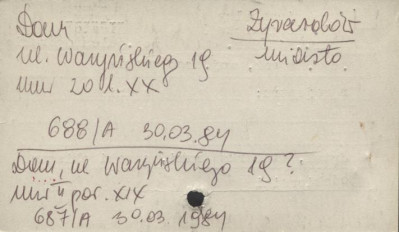 Dom
Żyrardów
miasto
ul. Waryńskiego 19
mur 20 l. XX
688/A 30.03.84
Dom, ul Waryńskiego 19?
mur II poł. XIX
687/A 30.03 1984